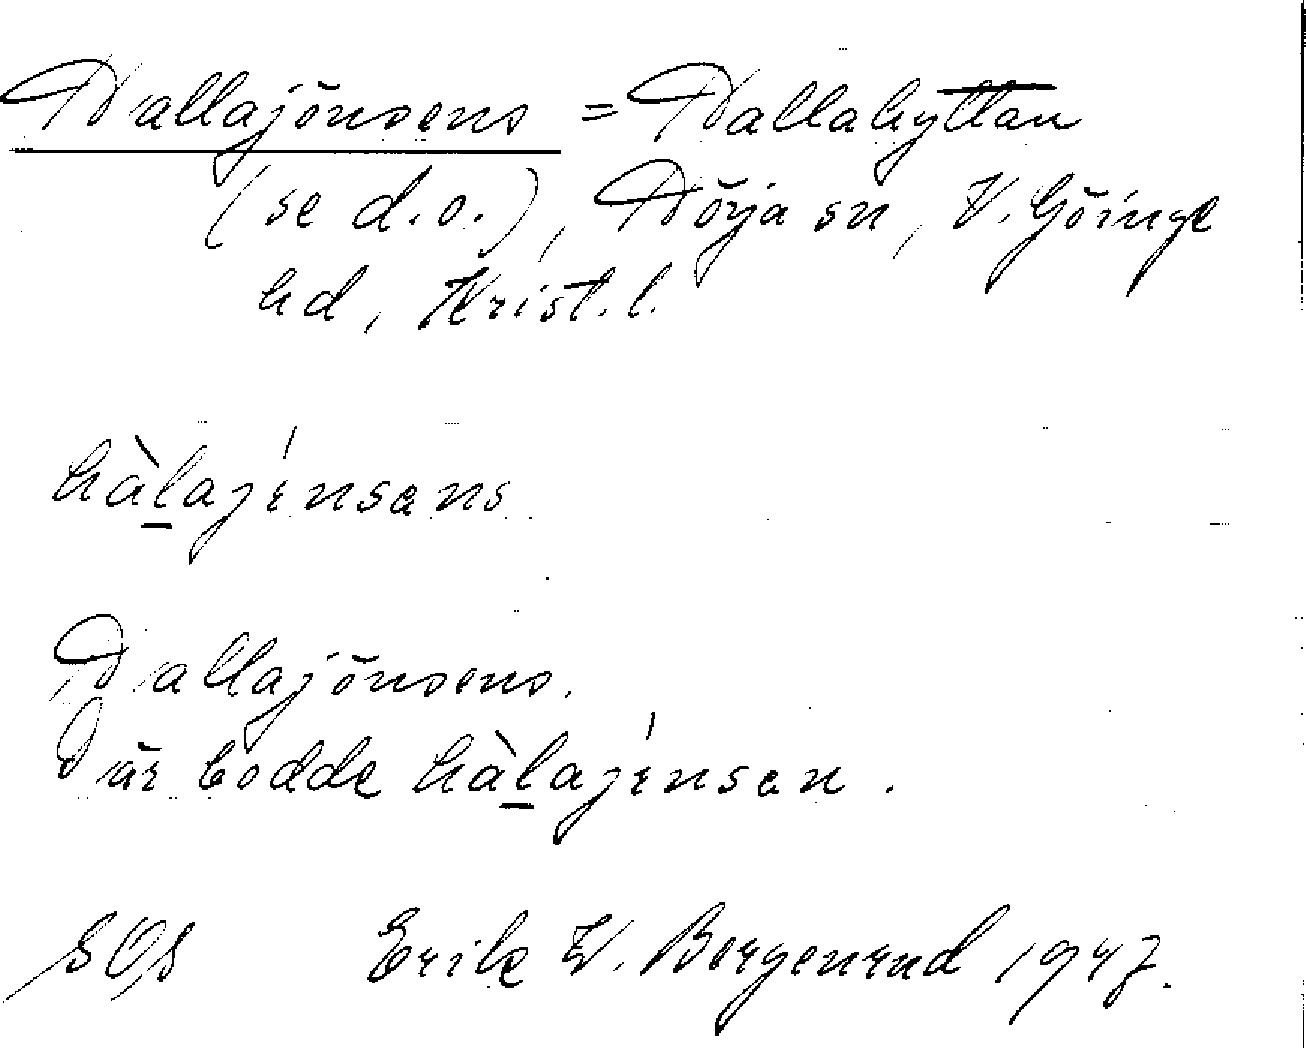 Hallajönsens = Hallahyttan
(se d.o.), Hörja sn, V. Göinge
hd, Krist. l.
hàlajénsans
Hallajönsens.
Där bodde hàlajénsan.
SOS Erik W. Bergenrud 1947.